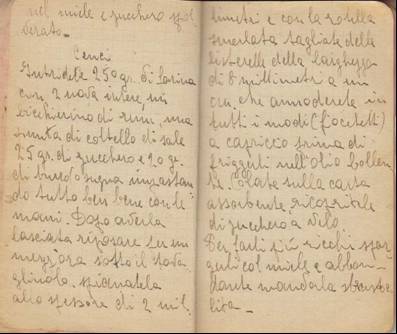 nel miele e zucchero spol
verato.-
Cenci
Intridete 250 gr. di farina
con 2 uova intere un
bicchierino di rum, una
punta di coltello di sale
25 gr. di zucchero e 20 gr.
di burro o sugna impastan
do tutto ben bene con le
mani. Dopo averla
lasciata riposare per un
mezz'ora sotto il tova
gliolo, spianatela
allo spessore di 2 mil
limetri e con la rotella
smerlata tagliate delle
listerelle della larghezza
di 8 millimetri a un
cm. che annoderete in
tutti i modi (fiocchetti)
a capriccio prima di
friggerli nell'olio bollen
te. Colate sulla carta
assorbente, ricoprite le
di zucchero a velo
Per farli più ricchi spar
geteli col miele e abbon-
dante mandorla